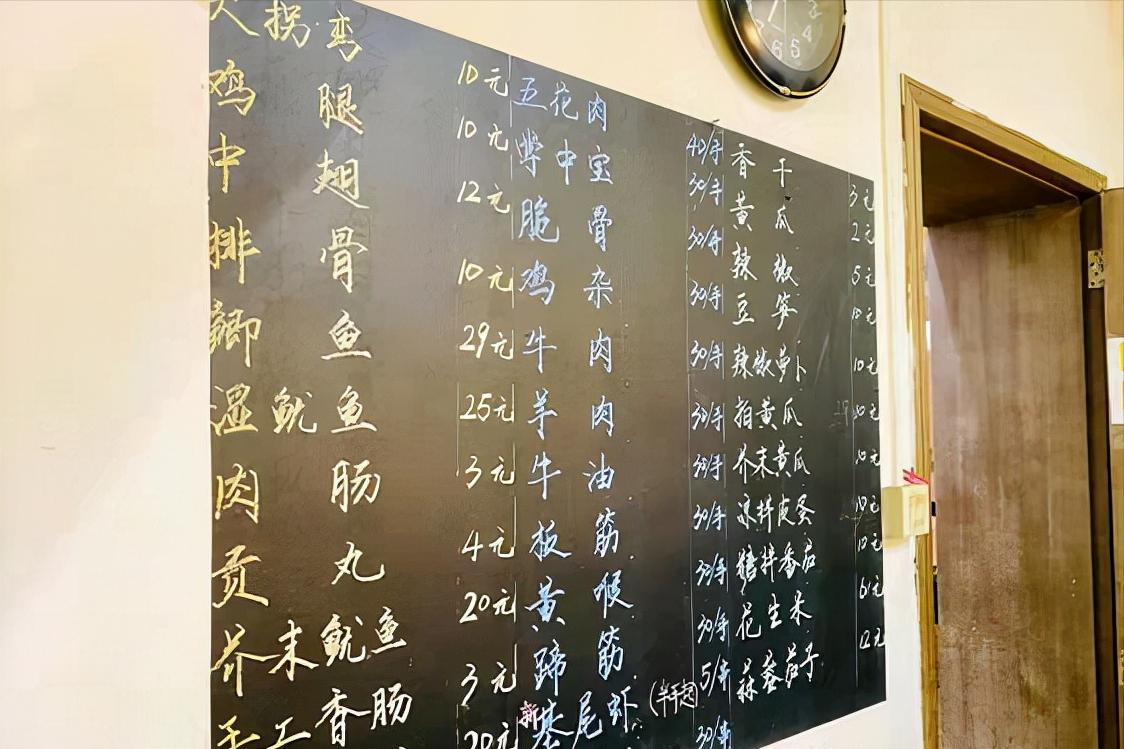 大拐弯 10元
鸡腿 10元
中翅 12元
排骨 10元
鲫鱼 29元
湿鱿鱼 25元
肉肠 3元
贡丸 4元
芥末鱿鱼 20元
手工香肠 3元
20元
五花肉 40/手
掌中宝 30/手
脆骨 30/手
鸡杂 30/手
牛肉 30/手
羊肉 30/手
牛油 30/手
板筋 30/手
黄喉 30/手
蹄筋 30/手
新基尾虾(半手起) 5/串
30/串
香干 3元
黄瓜 2元
辣椒 5元
豆笋 10元
辣椒萝卜 10元
拍黄瓜 10元
芥末黄瓜 10元
凉拌皮蛋 10元
糖拌番茄 10元
花生米 6元
蒜蓉茄子 12元